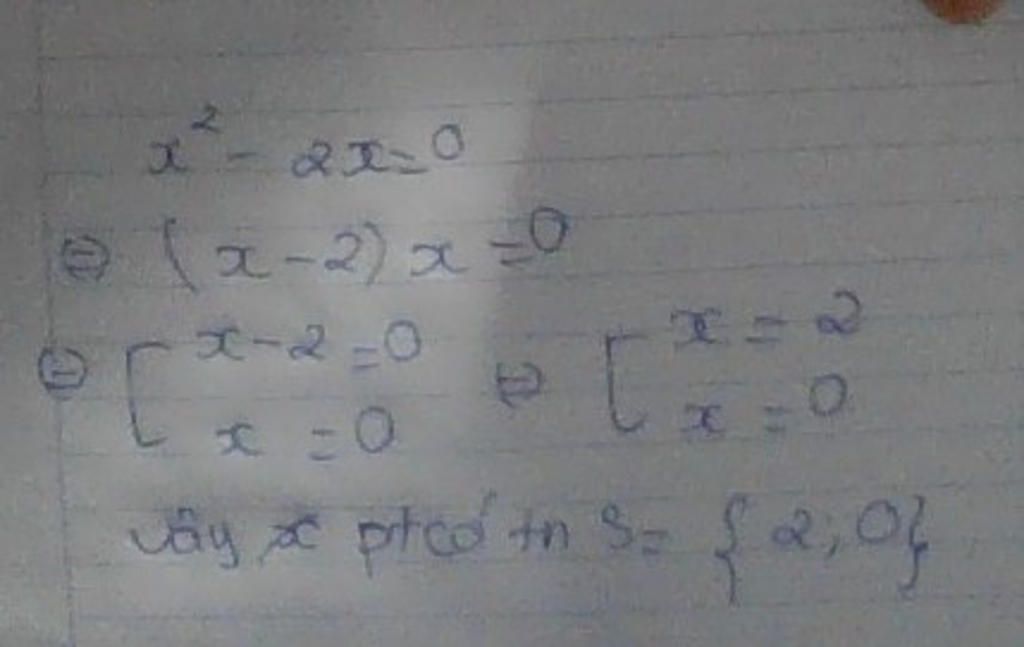 x² - 2x = 0
⇔ (x - 2) x = 0
⇔ [ x - 2 = 0 ⇔ [ x = 2
x = 0 x = 0
Vậy x pt có tn S = {2; 0}